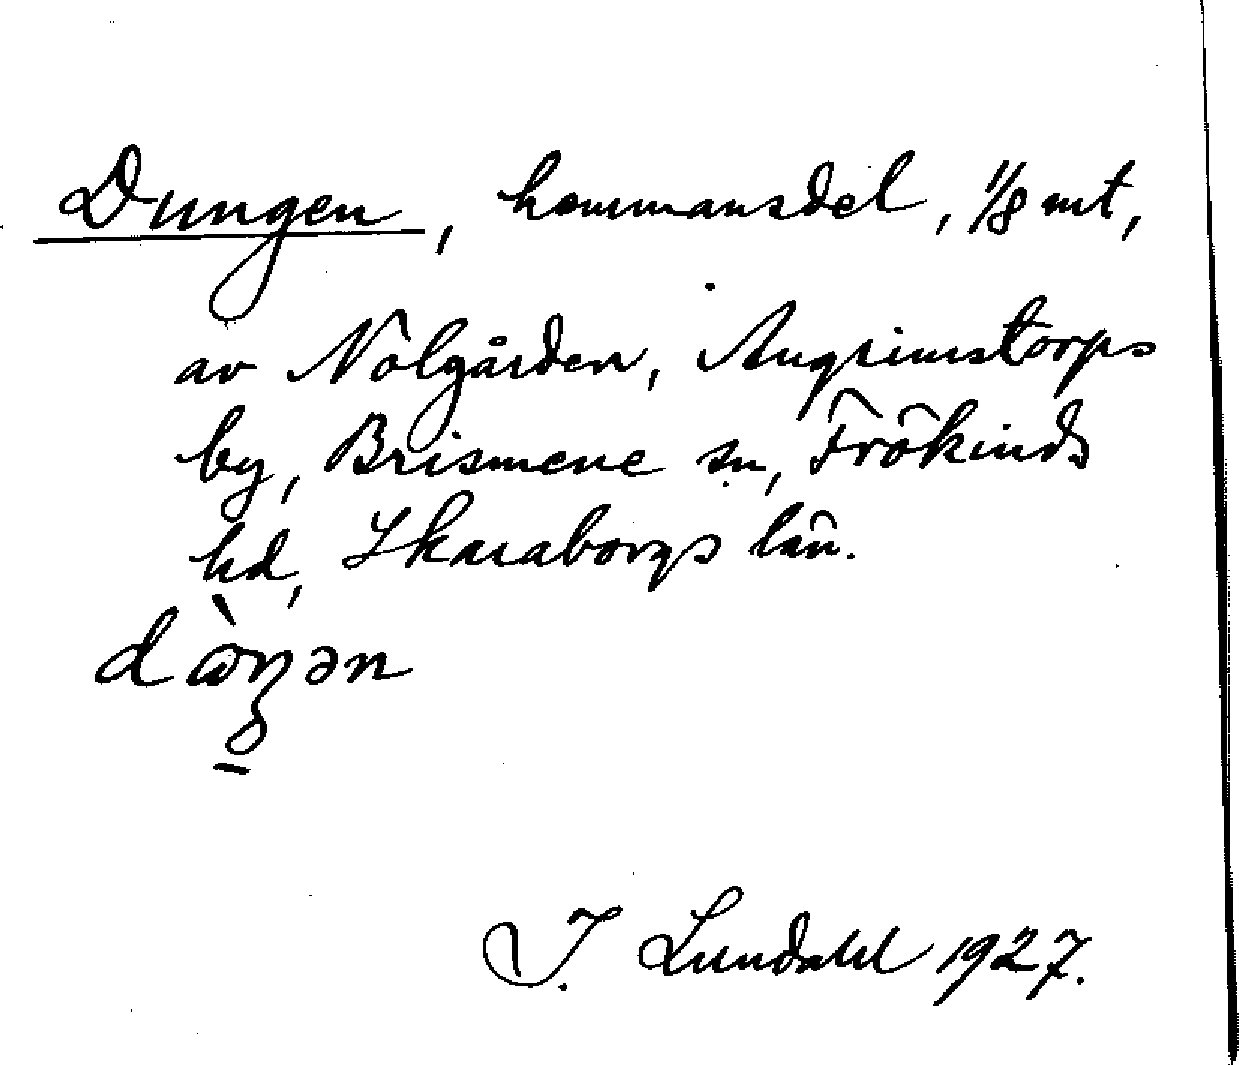 Dungen, hemmansdel, 1/8 mt,
av Nolgården, Angrimstorps
by, Brismene sn, Frökinds
hd, Skaraborgs län.
dàŋən
I. Lundahl 1927.